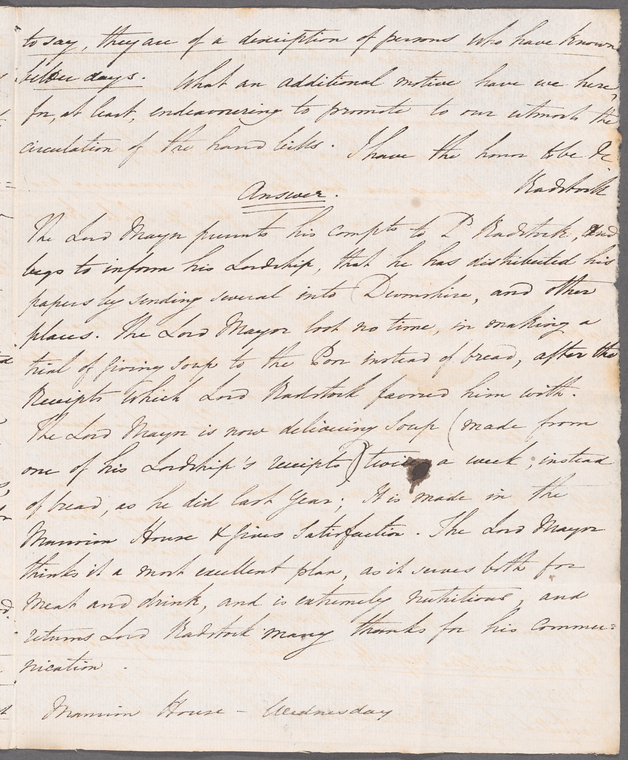 to say, they are of a description of persons who have known
better days. What an additional motive have we here,
for, at least, endeavouring to promote to our utmost the
circulation of the hand bills. I have the honor to be &c
Radstock
Answer.
The Lord Mayor presents his compts to Ld Radstock, and
begs to inform his Lordship, that he has distributed his
papers by sending several into Devonshire, and other
places. The Lord Mayor lost no time, in making a
trial of giving soup to the Poor instead of bread, after the
Receipts which Lord Radstock favored him with.
The Lord Mayor is now delivering Soup (made from
one of his Lordship's receipts) twice a week, instead
of bread, as he did last year; It is made in the
Mansion House & gives Satisfaction. The Lord Mayor
thinks it a most excellent plan, as it serves both for
meat and drink, and is extremely nutritious, and
returns Lord Radstock many thanks for his commu=
nication.
Mansion House - Wednesday